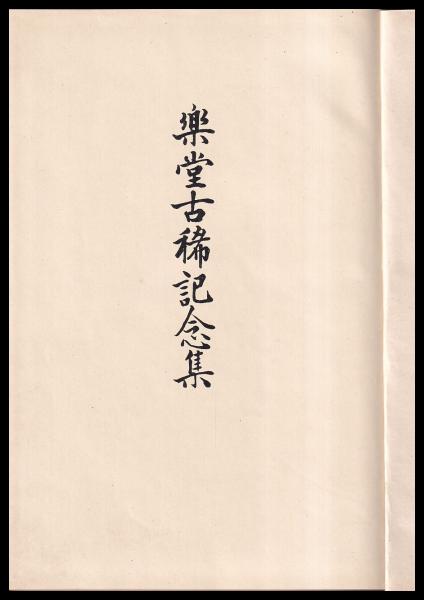 樂堂古稀記念集